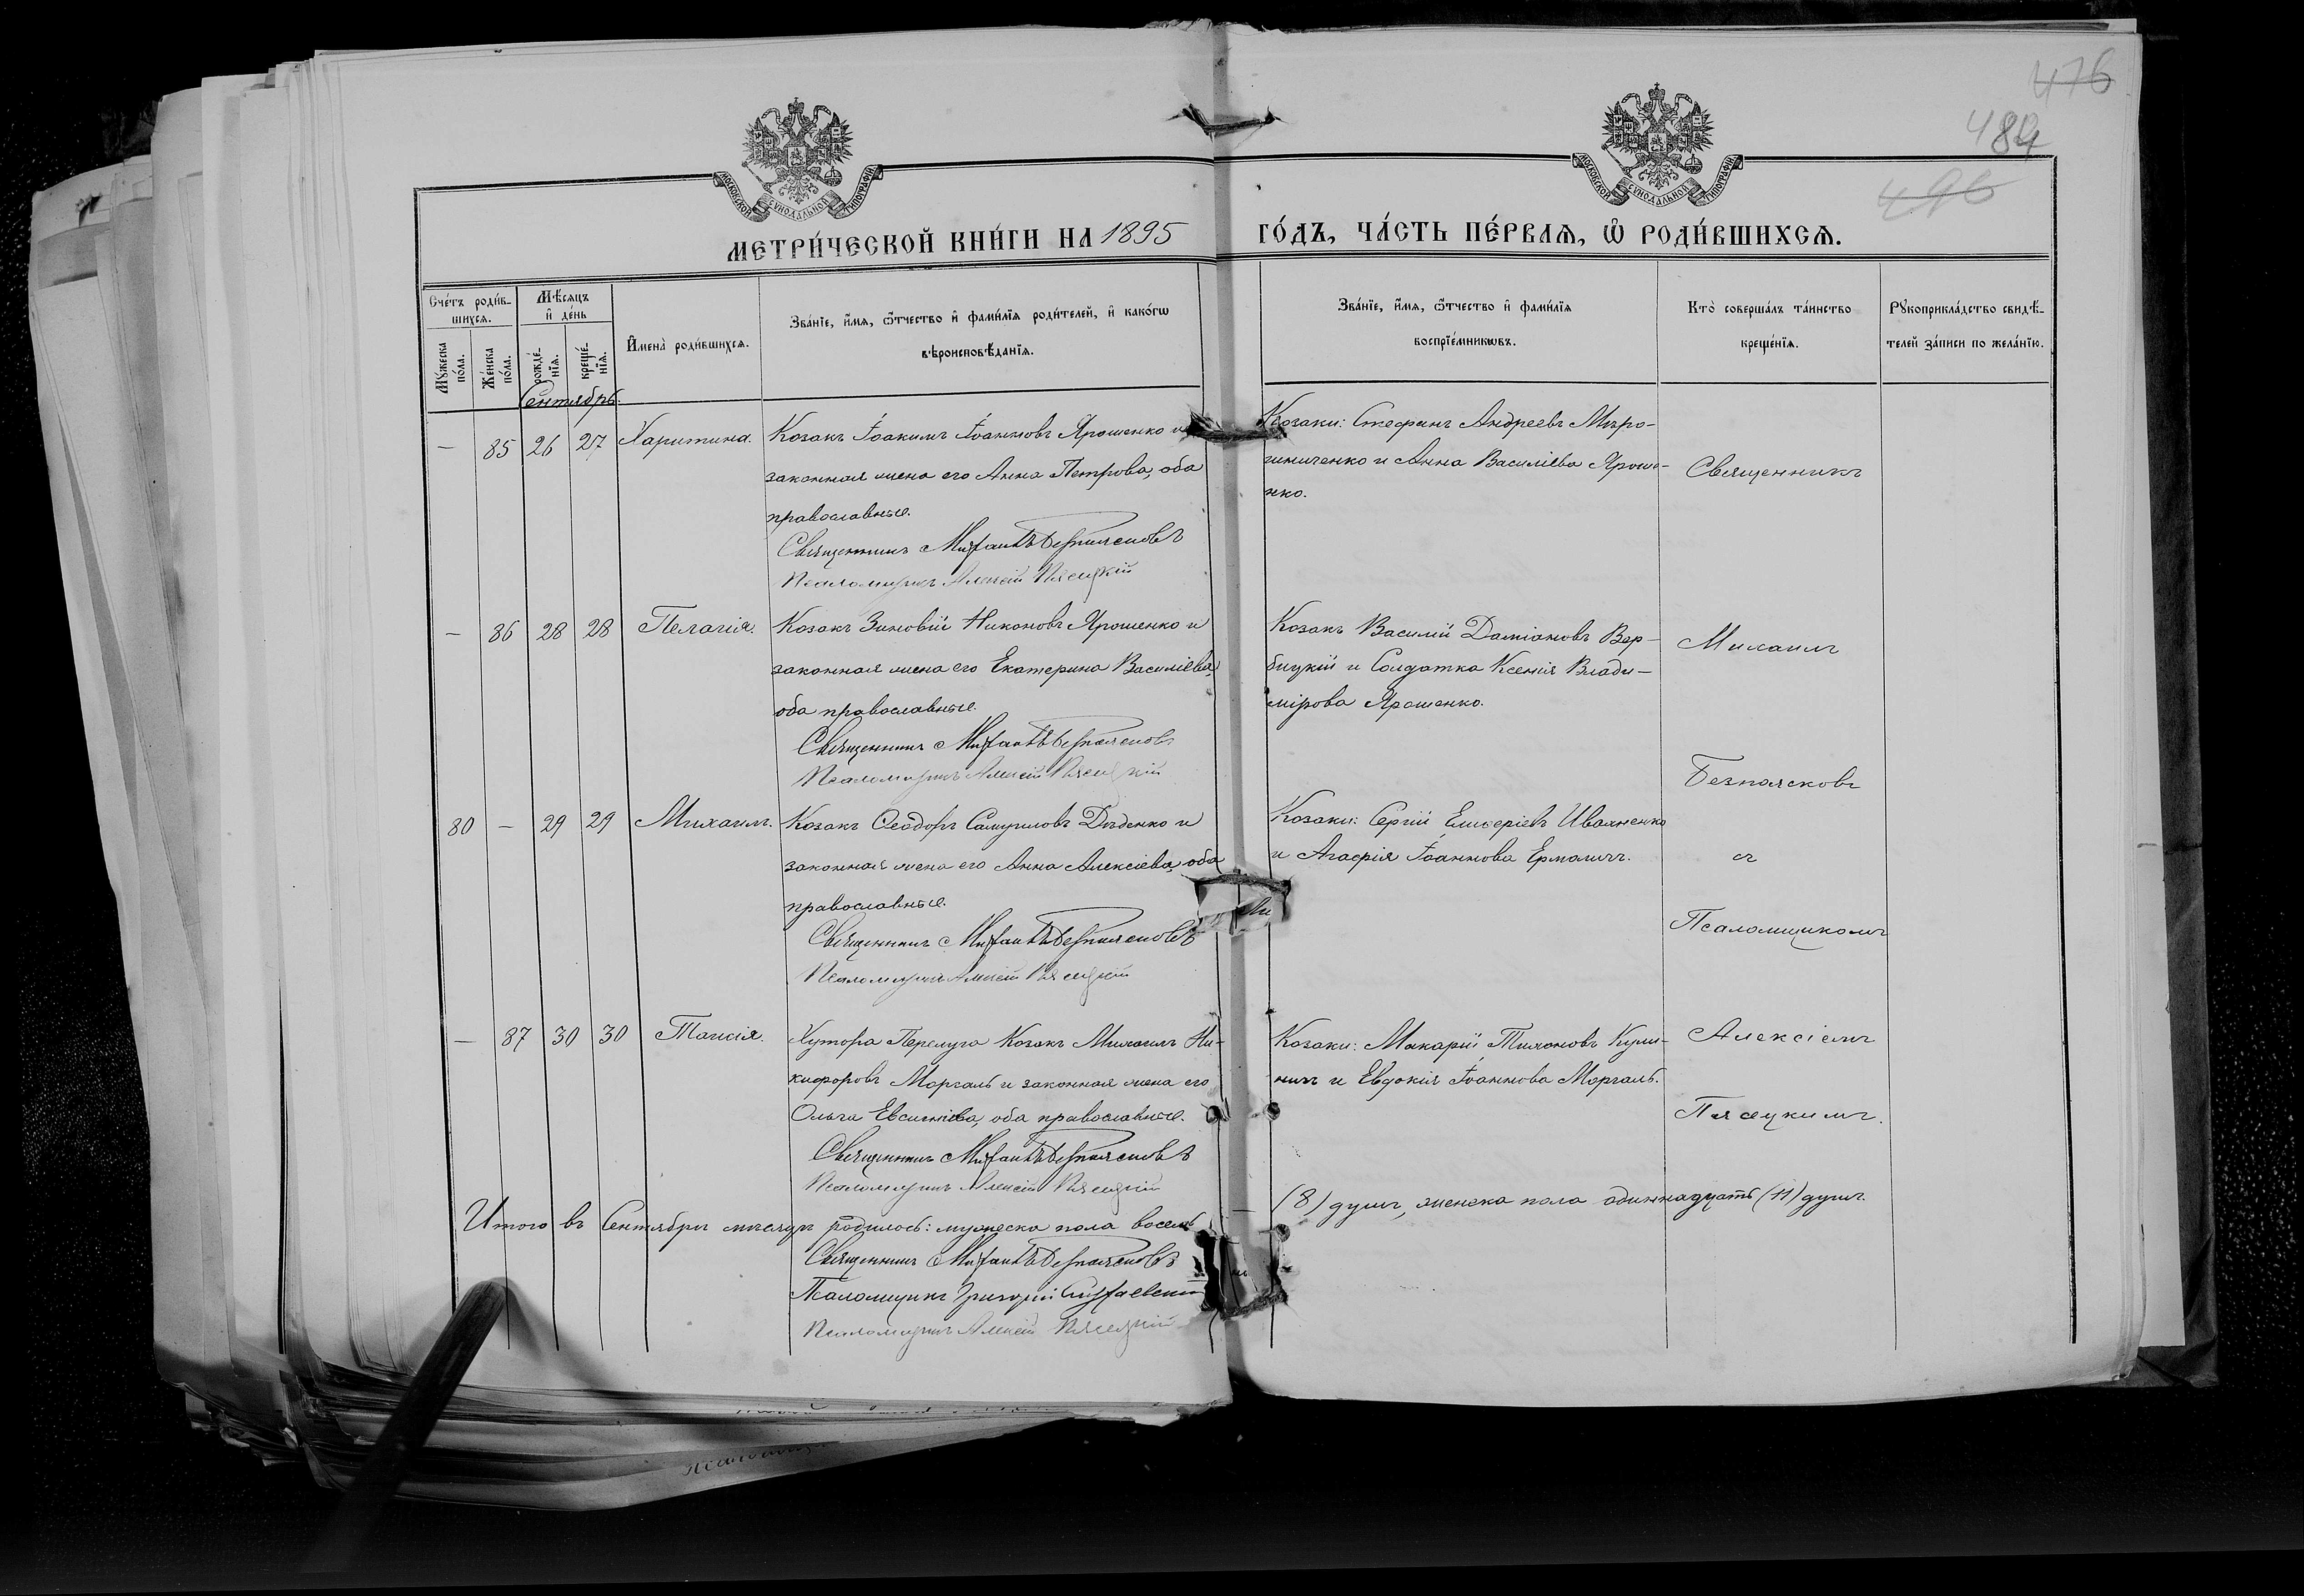 476
484
496
МОСКОВСКОЙ СѴНОДАЛЬНОЙ ТИПОГРАФІИ
МОСКОВСКОЙ СѴНОДАЛЬНОЙ ТИПОГРАФІИ
МЕТРИ́ЧЕСКОЙ КНИ́ГИ НА 1895 ГО́ДЪ, ЧА́СТЬ ПЕ́РВАѦ, Ѡ҆ РОДИ́ВШИХСѦ.
Сче́тъ роди́в-
шихсѧ.
Мꙋ́жеска по́ла.
Же́нска по́ла.
Мѣ́сѧцъ
и҆ де́нь
рожде́-
нїѧ.
креще́-
нїѧ.
И҆мена̀ роди́вшихсѧ.
Зва́нїе, и҆́мѧ, ѻ҆́тчество и҆ фами́лїѧ роди́телей, и҆ како́гѡ
вѣроисповѣ́данїѧ.
Зва́нїе, и҆́мѧ, ѻ҆́тчество и҆ фами́лїѧ
воспрїе́мникѡвъ.
Кто̀ соверша́лъ та́инство
креще́нїѧ.
Рꙋкоприкла́дство свидѣ́-
телей за́писи по жела́нїю.
Сентябрь.
— 85 26 27 Харитина. Козакъ Іоакимъ Іоанновъ Ярошенко и
законная жена его Анна Петрова, оба
православные.
Священникъ Михаилъ Безпоясковъ
Псаломщикъ Алексій Пясецкій
Козаки: Стефанъ Андреевъ Миро-
ниченко и Анна Василіева Яроше-
нко.
Священникъ
— 86 28 28 Пелагія. Козакъ Зиновій Никоновъ Ярошенко и
законная жена его Екатерина Василіева,
оба православные.
Священникъ Михаилъ Безпоясковъ
Псаломщикъ Алексій Пясецкій
Козакъ Василій Даміановъ Вер-
бицкій и Солдатка Ксенія Влади-
мірова Ярошенко.
Михаилъ
Безпоясковъ
80 — 29 29 Михаилъ. Козакъ Ѳеодоръ Самуиловъ Дѣденко и
законная жена его Анна Алексіева, оба
православные.
Священникъ Михаилъ Безпоясковъ
Псаломщикъ Алексій Пясецкій
Козаки: Сергій Елисеріевъ Иваненко
и Агафія Іоаннова Ермоличъ.
съ
Псаломщикомъ
— 87 30 30 Таисія. Хутора Перелуга Козакъ Михаилъ Ни-
кифоровъ Моргаль и законная жена его
Ольга Евсигніева, оба православные.
Священникъ Михаилъ Безпоясковъ
Псаломщикъ Алексій Пясецкій
Козаки: Макарій Тихоновъ Кули-
ничъ и Евдокія Іоаннова Моргаль.
Алексіемъ
Пясецкимъ.
Итого въ Сентябрѣ мѣсяцѣ родилось: мужеска пола восемь (8) душъ, женска пола одиннадцать (11) душъ.
Священникъ Михаилъ Безпоясковъ
Псаломщикъ Григорій
Псаломщикъ Алексій Пясецкій